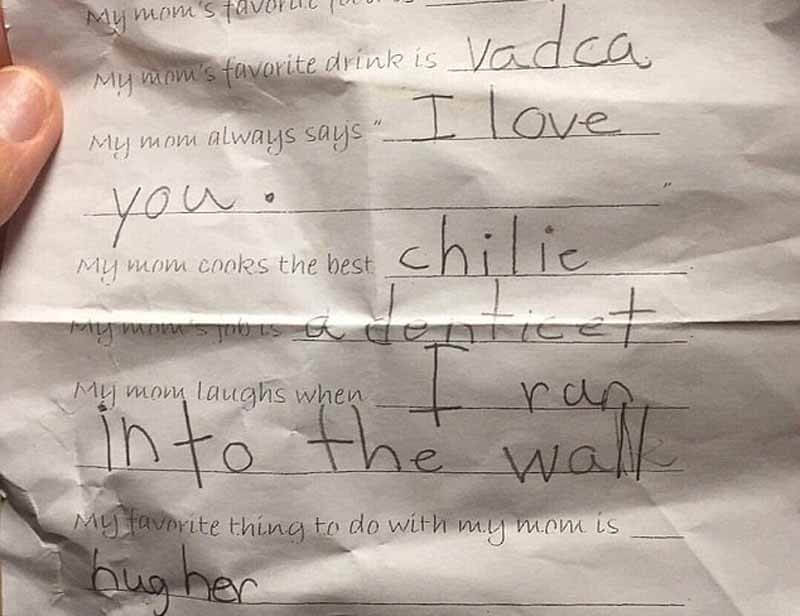 My mom's favorite
My mom's favorite drink is vadca
My mom always says " I love
you. "
My mom cooks the best chilie.
My mom's job is a denticet.
My mom laughs when I ran
into the wall
My favorite thing to do with my mom is
hug her